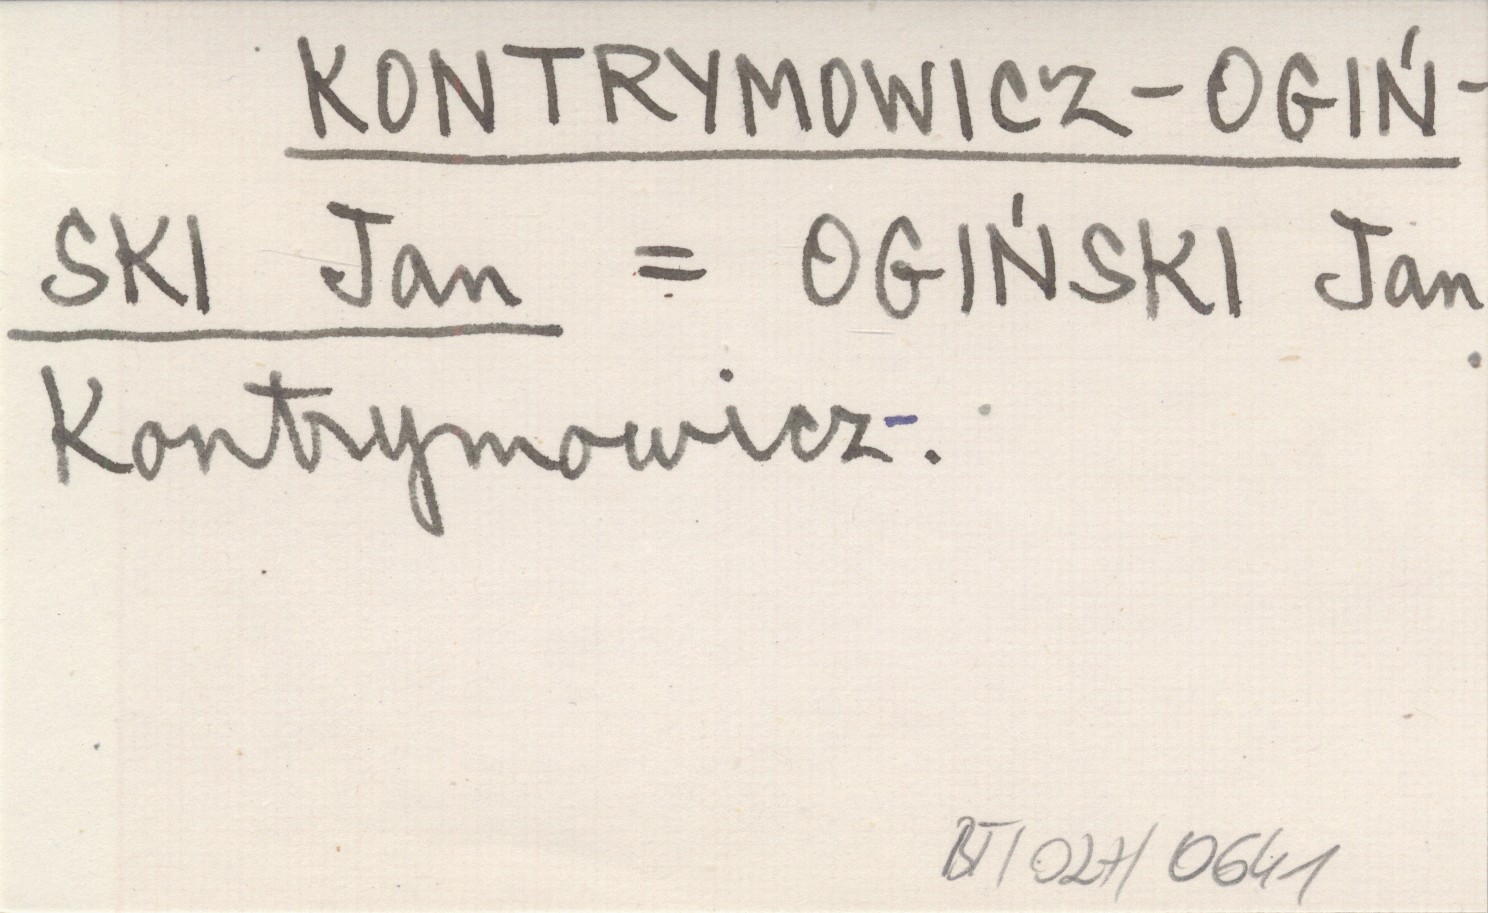 KONTRYMOWICZ-OGIŃ-
SKI Jan = OGIŃSKI Jan
Kontrymowicz-.
BT/027/0641